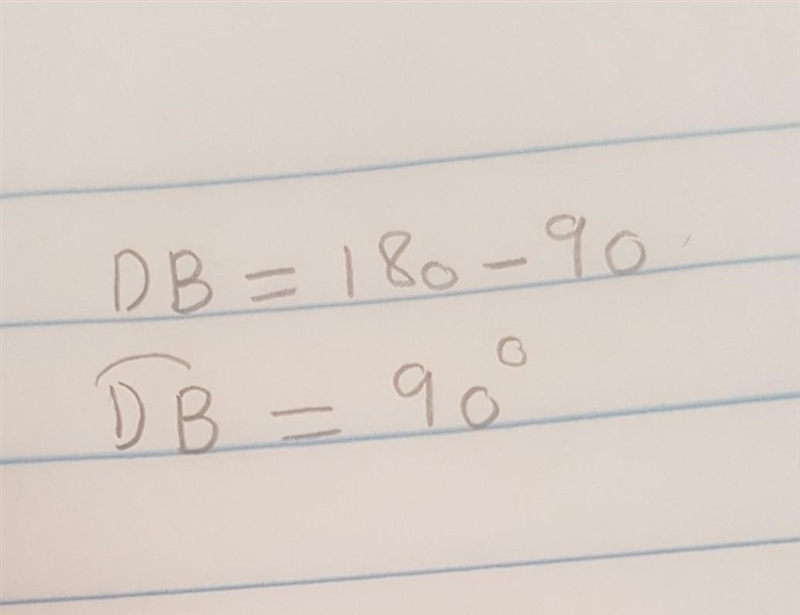 DB = 180 - 90
D͡B = 90°